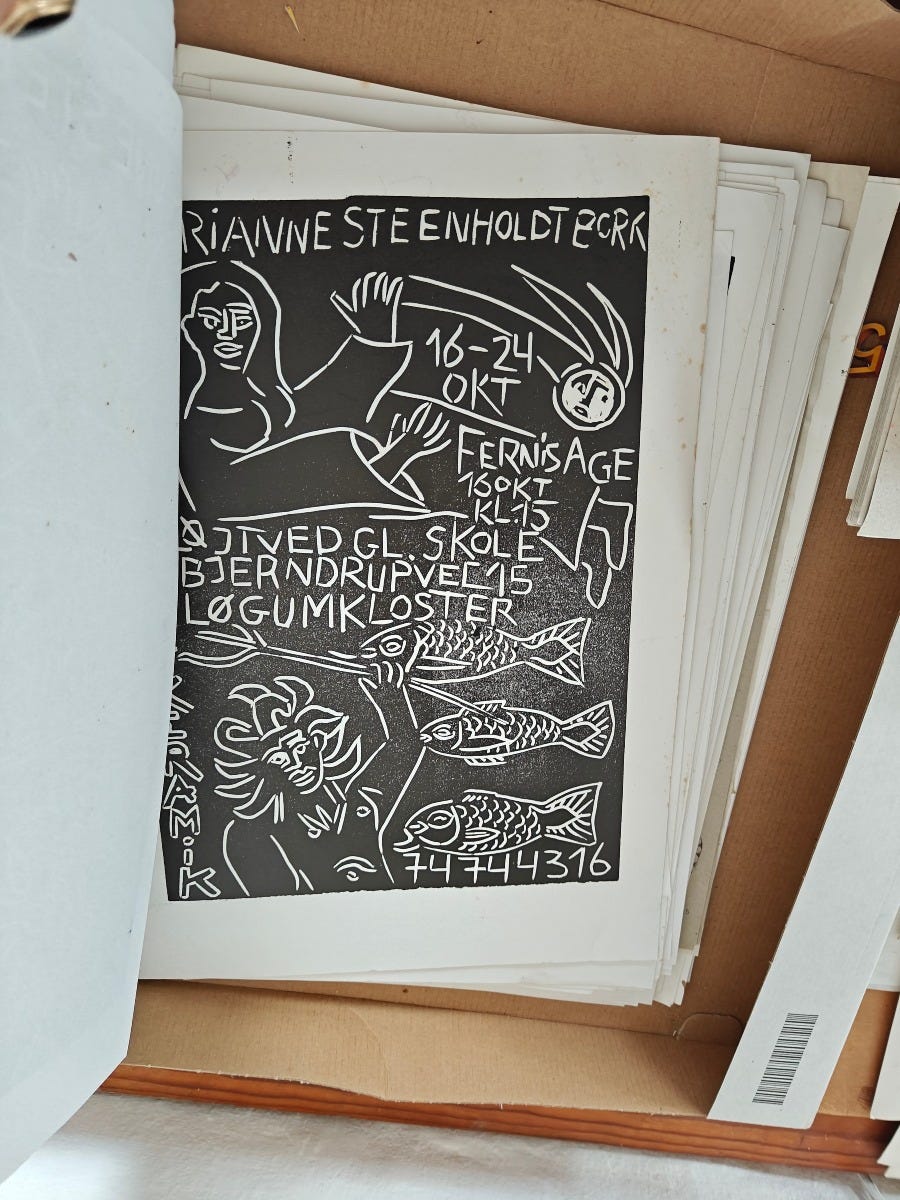 RIANNE STEENHOLDT BORK
16-24
OKT
FERNiSAGE
16 OKT
KL.15
ØJTVED GL. SKOLE
BJERNDRUPVEJ 15
LØGUMKLOSTER
KERAMiK
74744316
5